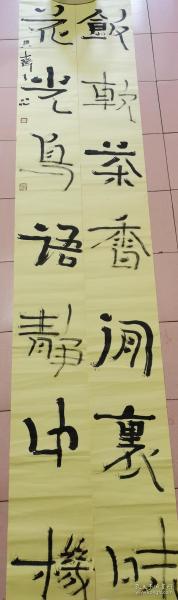 飯軟茶香閒裏味
花光鳥語靜中機